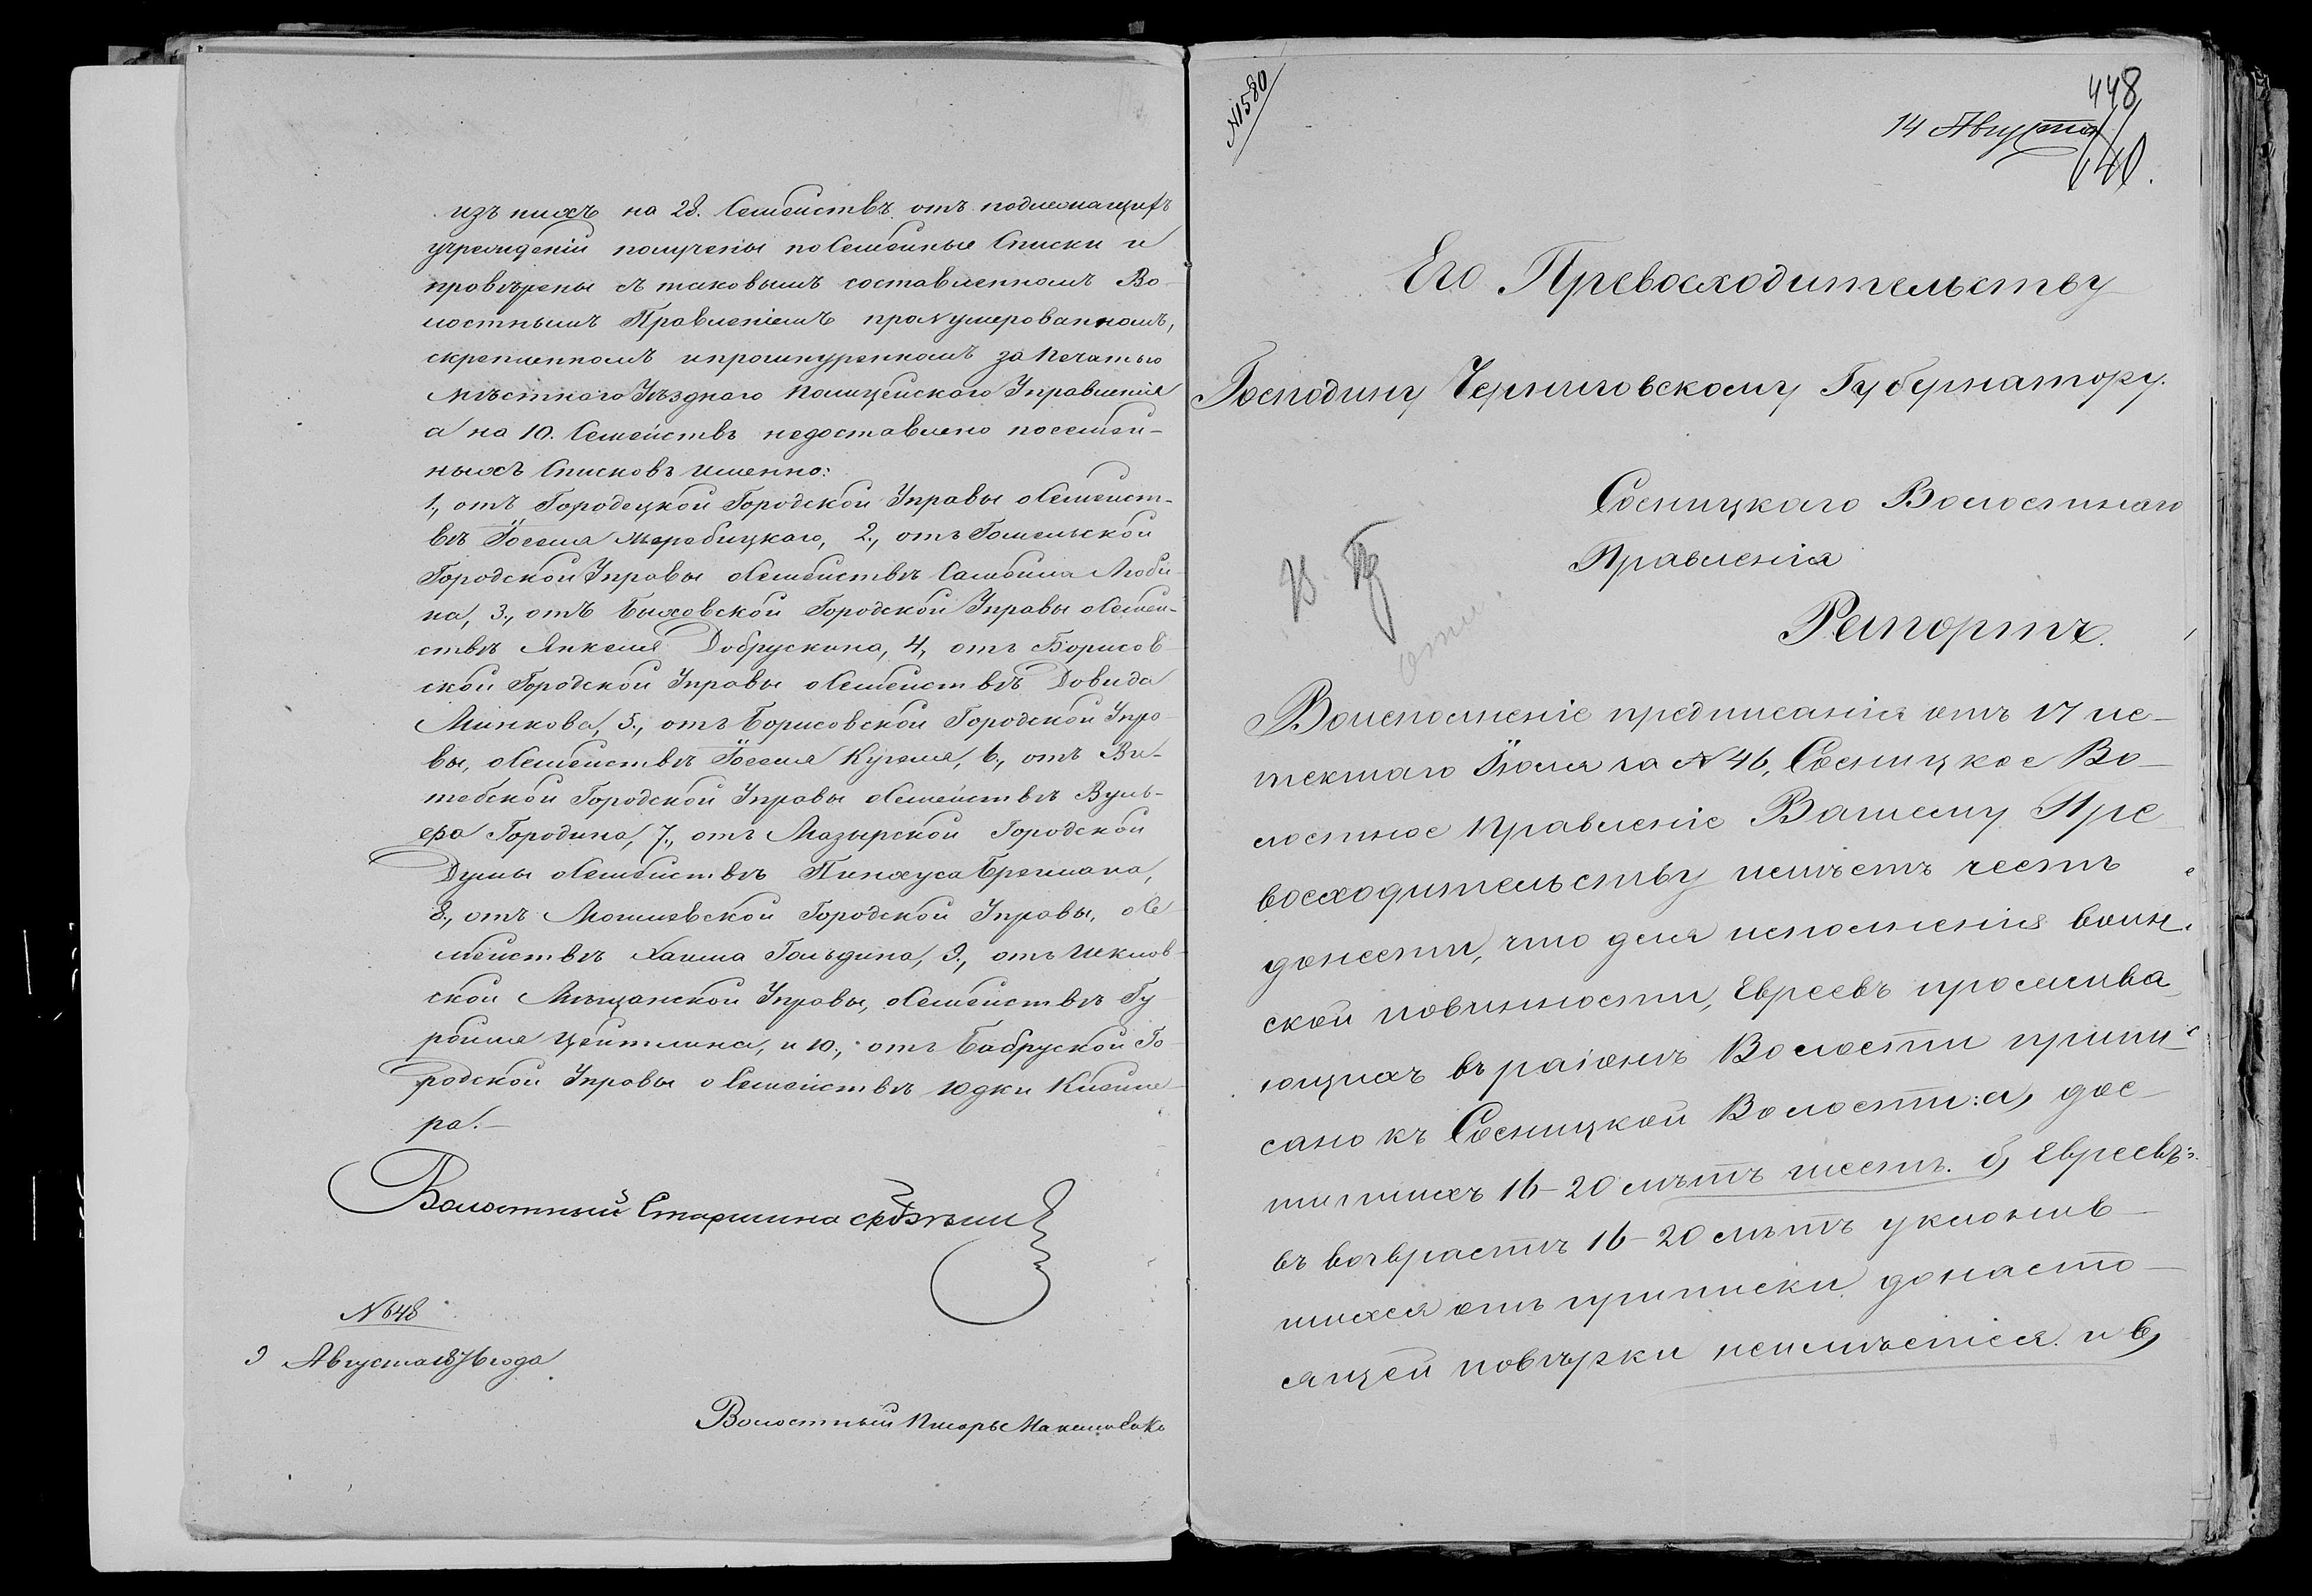 изъ нихъ на 28. Семействъ отъ подлежащихъ
учрежденій получены посемейные Списки и
провѣрены съ таковымъ составленномъ Во-
лостнымъ Правленіемъ пронумерованномъ,
скрепленномъ и прошнуренномъ за печатью
мѣстнаго Уѣзднаго Полицейскаго Управленія
а на 10. Семействъ недоставлено посемей-
ныхъ Списковъ именно:
1, отъ Городецкой Городской Управы о Семейст-
вѣ Іоселя 2., отъ Гомельской
Городской Управы о Семействѣ Люби-
на, 3., отъ Быховской Городской Управы о Семей-
ствѣ Янкеля Добрускина, 4, отъ Борисов-
ской Городской Управы о Семействѣ Довида
Минкова, 5., отъ Борисовской Городской Упра-
вы, о Семействѣ Іоселя Кугеля, 6., отъ Ви-
тебской Городской Управы о Семействѣ Вуль-
фа Городина, 7., отъ Мазырской Городской
Думы о Семействѣ Пинхуса Брегмана,
8., отъ Могилевской Городской Управы, о Се-
мействѣ Хаима Гольдина, 9., отъ Шклов-
ской Мѣщанской Управы, о Семействѣ Гу-
Цейтлина, и 10., отъ Бобруской Го-
родской Управы о Семействѣ Юдки
ра.-
Волостный Старшина
N 648
9 Августа 1876 года
Волостный Писарь
N 1580
448
14 Августа
640.
Его Превосходительству
Господину Черниговскому Губернатору.
Сосницкаго Волостнаго
Правленія
Рапортъ.
Воисполненіе предписанія отъ 17 ис-
текшаго Іюля за N 46, Сосницкое Во-
лостное Правленіе Вашему Пре-
восходительству имѣетъ честь
донести, что для исполненія воин-
ской повинности, Евреевъ прожива-
ющихъ въ раіонѣ Волости припи-
сано къ Сосницкой Волости: а, дос-
тигшихъ 16-20 лѣтъ шесть. б, Евреевъ
въ возврастѣ 16-20 лѣтъ уклонив-
шихся отъ приписки донасто-
ящей повѣрки неимѣется. и в,